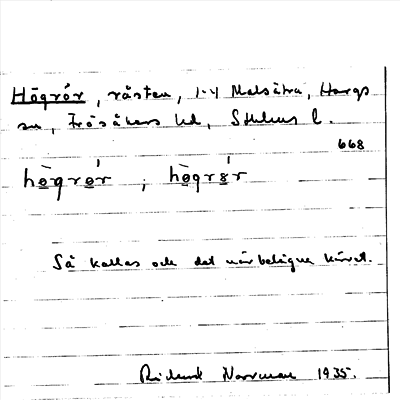 Högrör, råsten, 1-4 Malsätra, Hargs
sn, Frösåkers hd, Sthlms l.
668
hògrór ; hògrór
Så kallas ock det närbelägna kärret.
Rickard Norrman 1935.